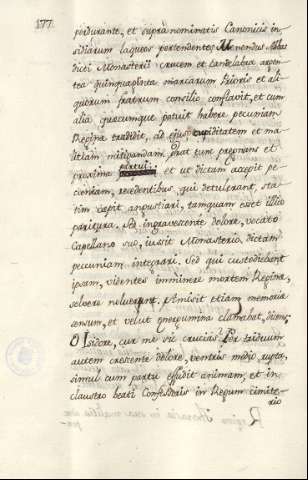 177.
perdurante, et supra nominatis Canonicis in
sidiarum laqueos portendentes, Menendus Abba
dicti Monasterii crucem et candelabra argen
tea quinquaginta marcarum Prioris et ali
quorum fratrum consilio conflavit, et cum
alia quacumque potuit habere pecuniam
Regina tradidit, ad ejus cupiditatem et ma
litiam mitigandam. Erat tunc pregnans et
proxima partui: et ut dictam accepit pe
cuniam, recedentibus qui detulerant, sta
tim cepit angustiari, tamquam esset illico
paritura. Sed ingravescente dolore, vocato
Capellano suo, jussit Monasterio, dictam
pecuniam integrari. Sed qui custodiebant
ipsam, videntes imminere mortem Regina,
solvere noluerunt. Amisit etiam memoria
sensum, et velut energumina clamabat, dicens:
O Isidore, cur me sic crucias? Per triduum
autem crescente dolore, ventris medio rupta,
simul cum partu effudit animam, et in
claustro beati Confessoris in Regum cimite-
rio